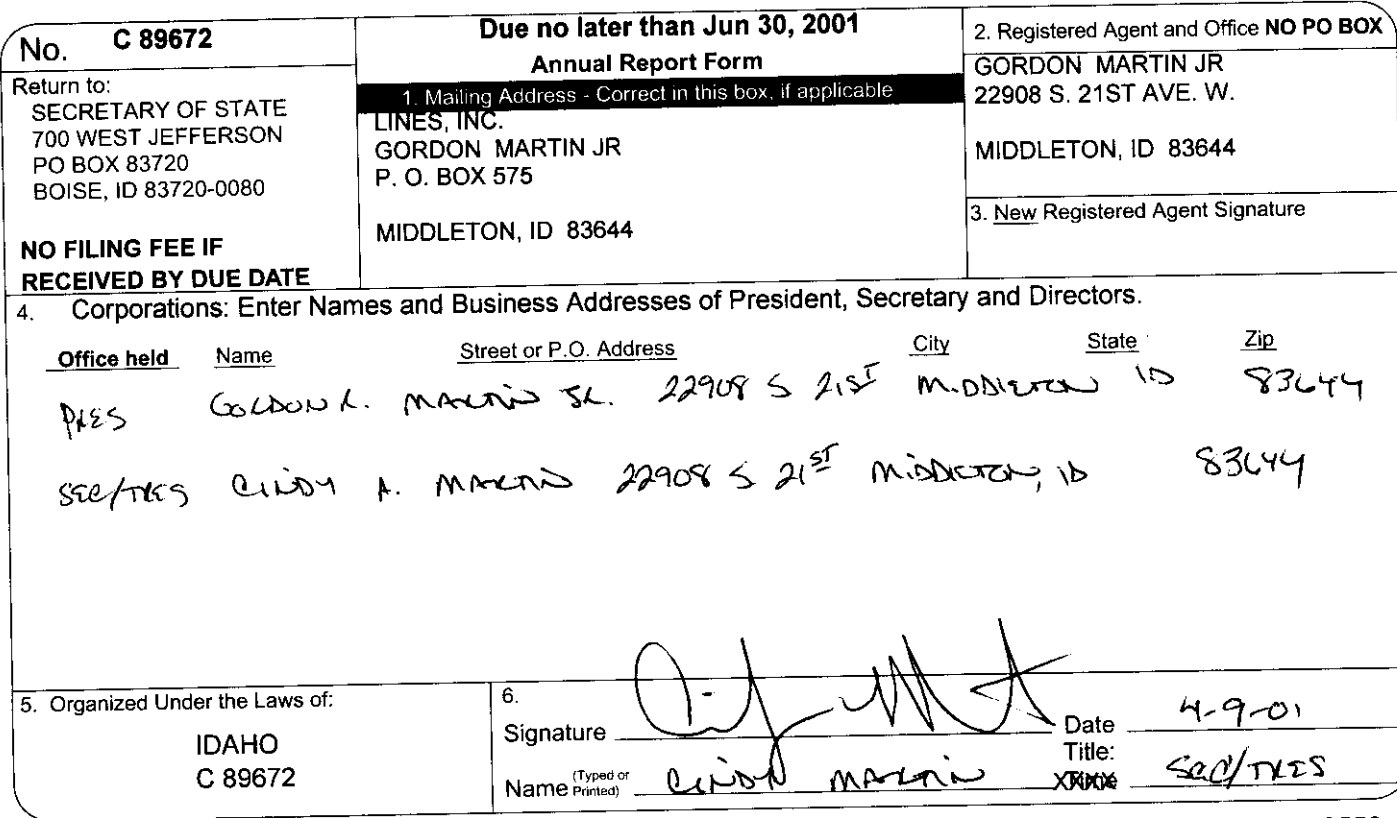 No. C 89672
Return to:
SECRETARY OF STATE
700 WEST JEFFERSON
PO BOX 83720
BOISE, ID 83720-0080
NO FILING FEE IF
RECEIVED BY DUE DATE
Due no later than Jun 30, 2001
Annual Report Form
1. Mailing Address - Correct in this box, if applicable
LINES, INC.
GORDON MARTIN JR
P. O. BOX 575
MIDDLETON, ID 83644
2. Registered Agent and Office NO PO BOX
GORDON MARTIN JR
22908 S. 21ST AVE. W.
MIDDLETON, ID 83644
3. New Registered Agent Signature
4. Corporations: Enter Names and Business Addresses of President, Secretary and Directors.
Office held Name Street or P.O. Address City State Zip
PRES GORDON R. MARTIN JR. 22908 S 21ST MIDDLETON ID 83644
SEC/TRES CINDY A. MARTIN 22908 S 21ST MIDDLETON, ID 83644
5. Organized Under the Laws of:
IDAHO
C 89672
6.
Signature Date 4-9-01
Name (Typed or Printed) CINDY MARTIN Title: SEC/TRES